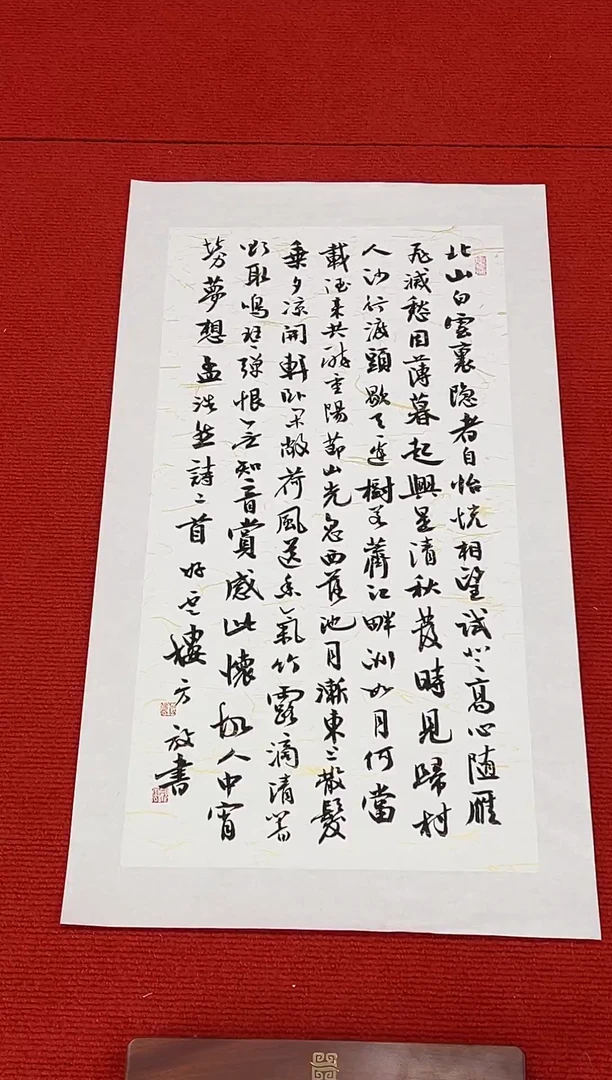 北山白雲裏隐者自怡悦相望試登高心随雁
飛滅愁因薄暮起興是清秋發時見歸村
人沙行渡頭歇天邊樹若薺江畔洲如月何當
載酒来共醉重陽節山光忽西落池月漸東上散髮
乗夕凉開軒卧閑敞荷風送香氣竹露滴清響
欲取鳴琴彈恨無知音賞感此懷故人中宵
勞夢想孟浩然詩二首 樓方放書